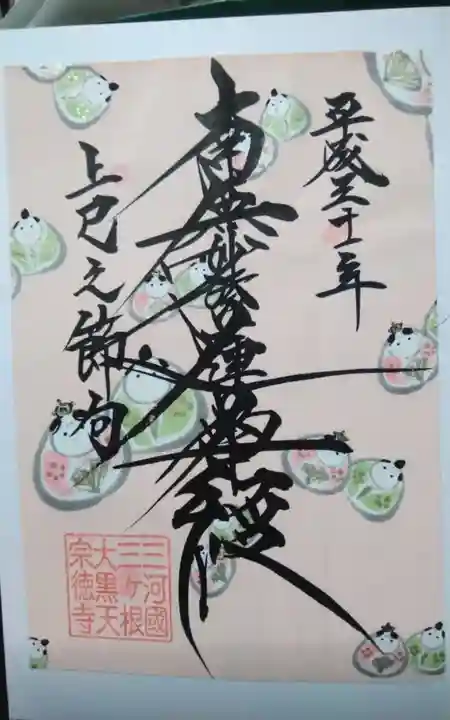 平成三十一年
南無妙法蓮華経
上巳之節句
三河國
三ヶ根
大黒天
宗徳寺